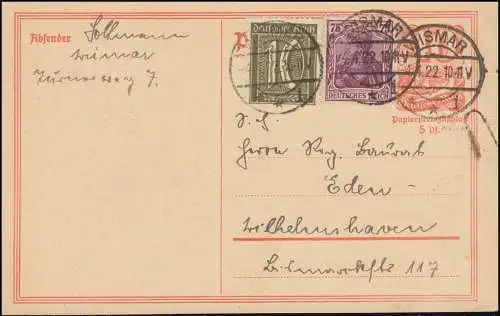 Absender
Sothmann
Wismar
Turnerweg 7.
Deutsches Reich
10
75
DEUTSCHES REICH
WISMAR
22.10-11V
WISMAR
.22.10-11V
Papierpreiszuschlag
5 Pf.
S. H.
Herrn Reg. Baurat
Eden
Wilhelmshaven
Bismarckstr 117